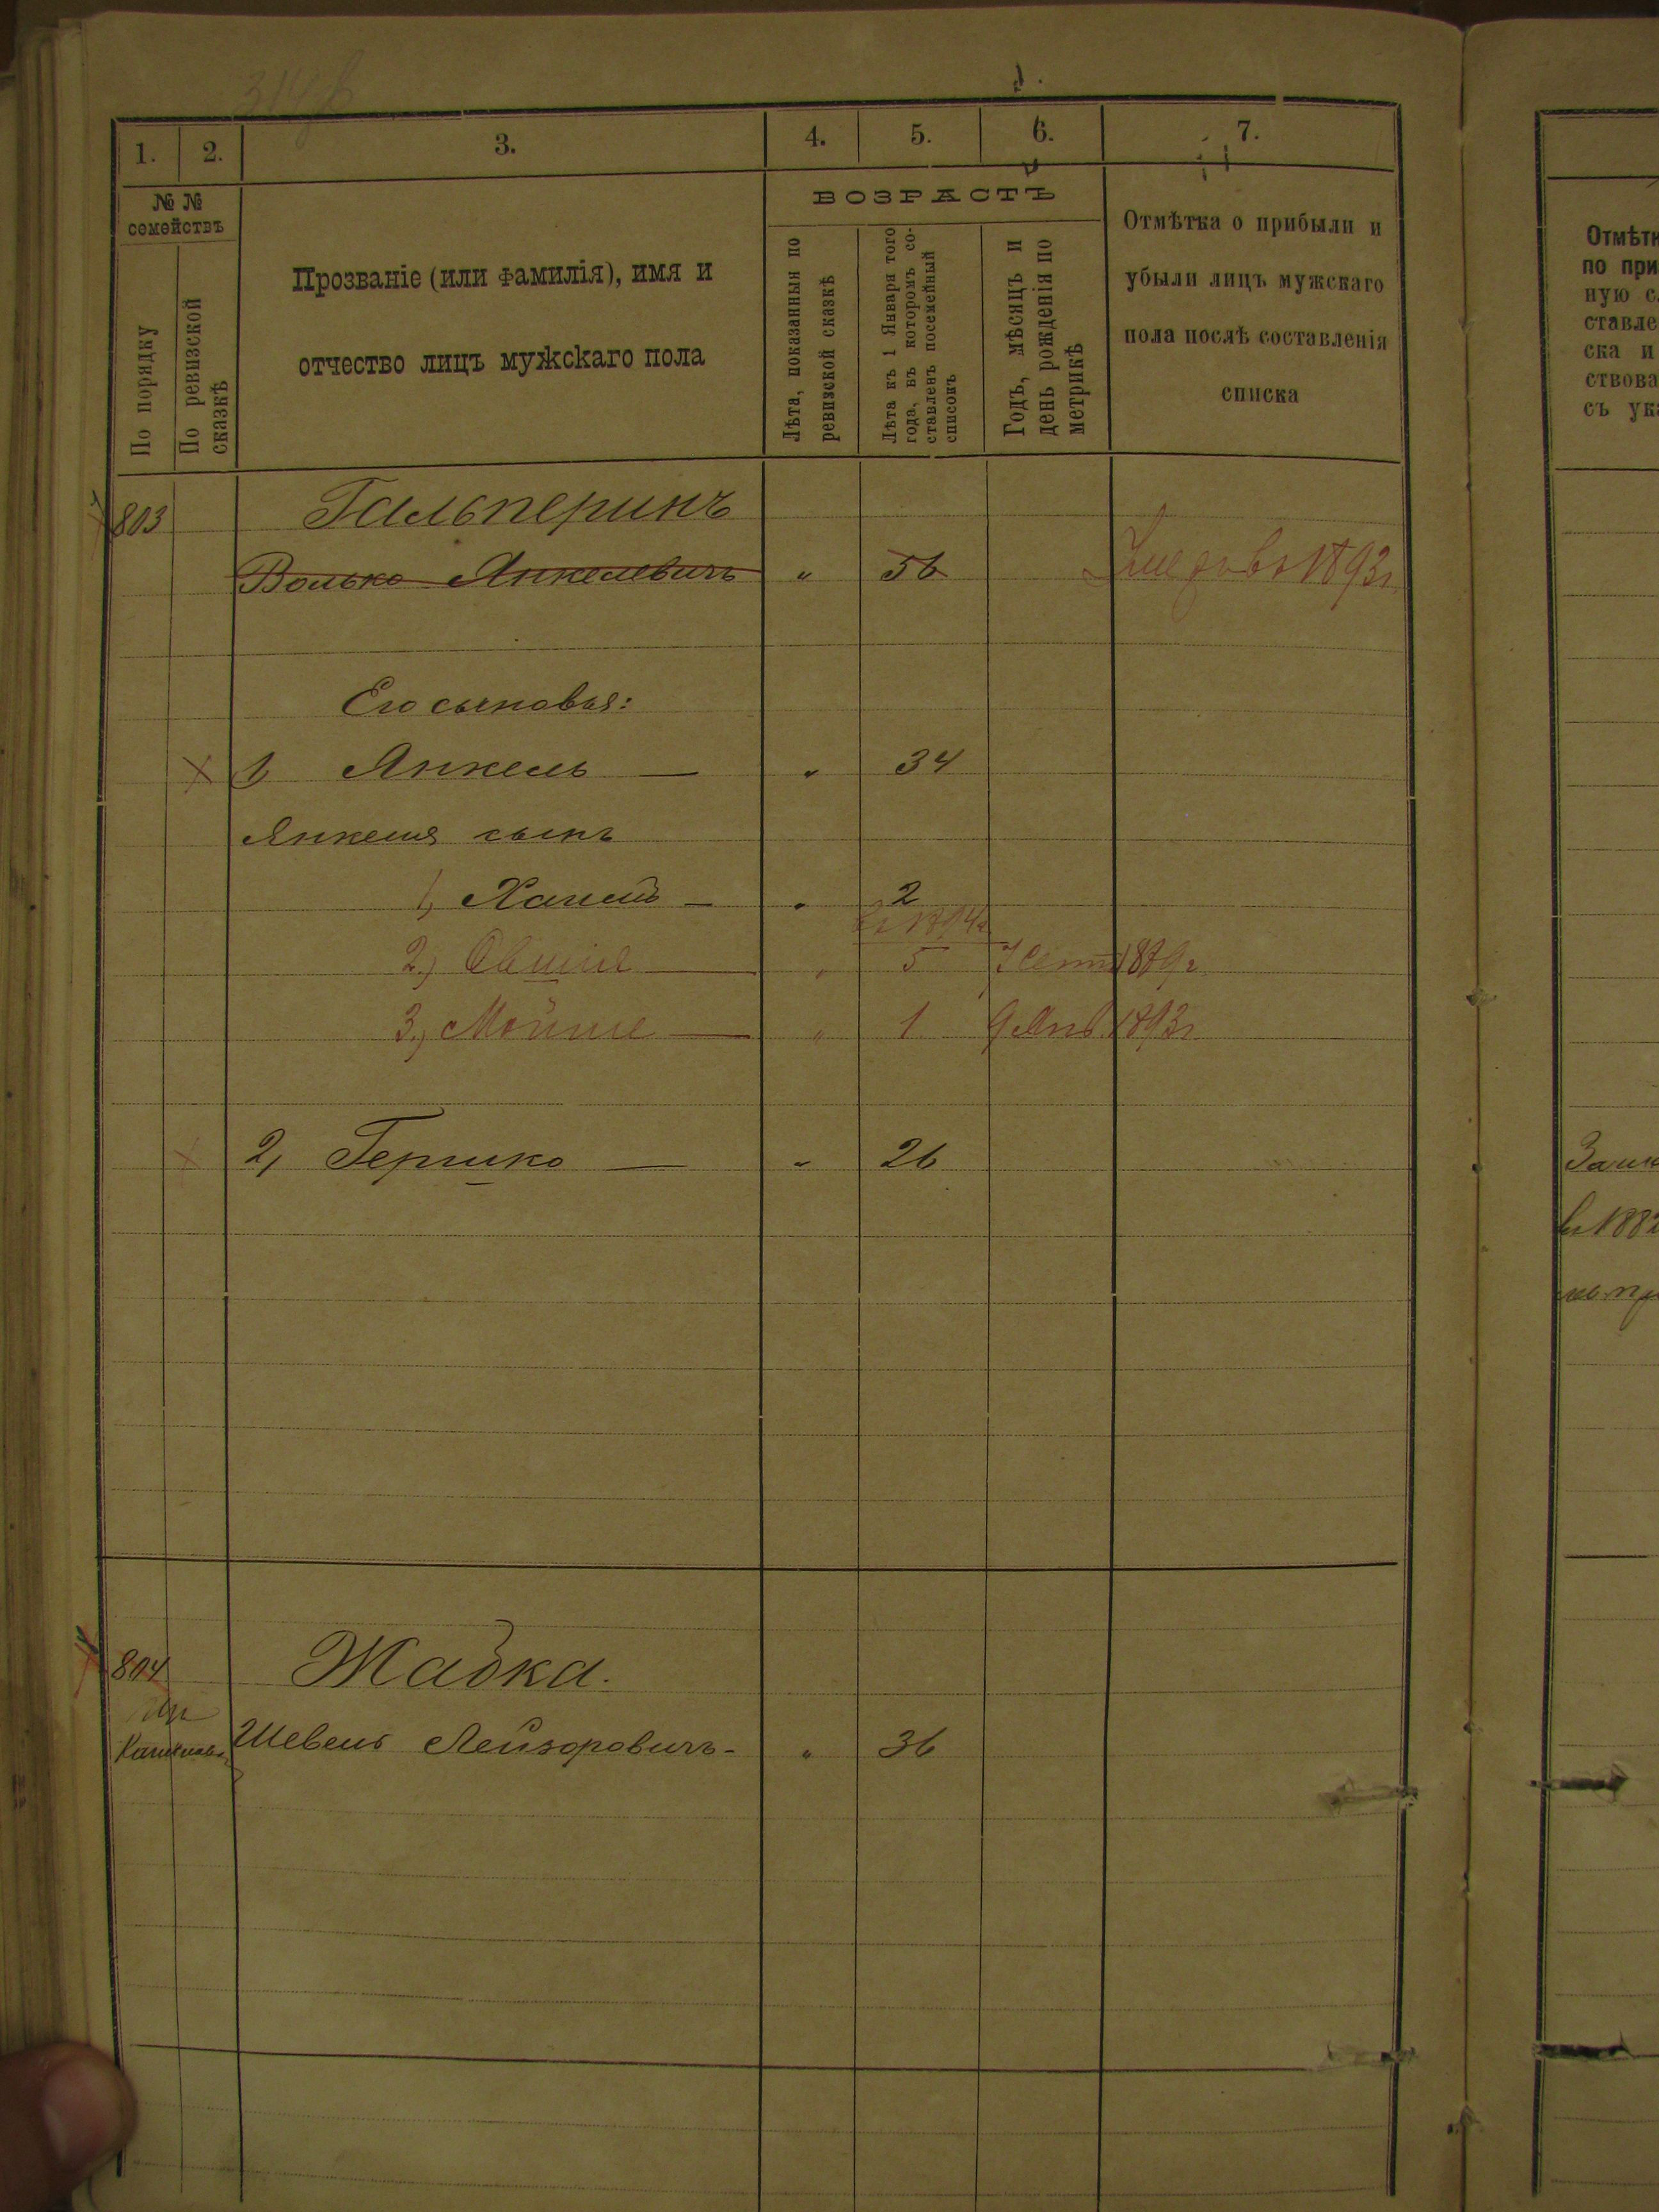 1. 2. 3. 4. 5. 6. 7.
№ № семействъ
По порядку
По ревизской сказкѣ
Прозваніе (или фамилія), имя и
отчество лицъ мужскаго пола
ВОЗРАСТЪ
Лѣта, показанныя по ревизской сказкѣ
Лѣта къ 1 Января того года, въ которомъ составленъ посемейный списокъ
Годъ, мѣсяцъ и день рожденія по метрикѣ
Отмѣтка о прибыли и
убыли лицъ мужскаго
пола послѣ составленія
списка
803 Гальперинъ
Волько Янкелевичъ " 56 1893г.
Его сыновья:
1, Янкель — " 34
Янкеля сынъ
1, Хаимъ — " 2
2.) Овшия — " 5 7 Сент. 1889г.
3.) Мойше — " 1. 9 Янв. 1893г.
2, Гершко — " 26
804 Жабка.
Шевель Лейзоровичъ - " 36
Отмѣтк
по при
ную с
ставле
ска и
ствова
съ ук